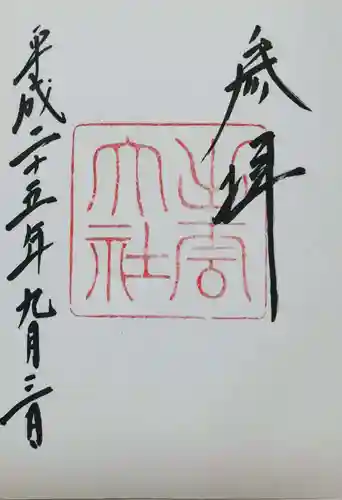 参拝
出雲大社
平成二十五年九月二日